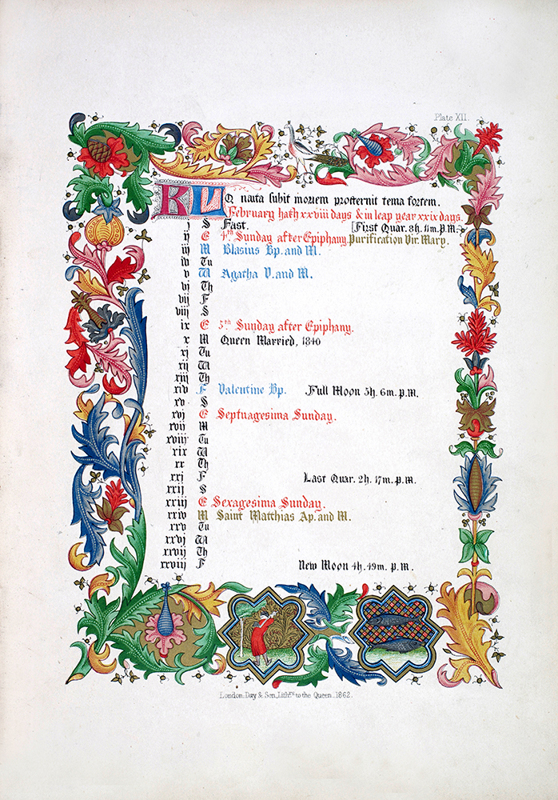 Plate XII.
KL Quarta subit mortem prosternit tercia fortem.
February hath xxviii days & in leap year xxix days.
j S Fast. [First Quar. 8h. 11m. P.M.
ij E 4th Sunday after Epiphany. Purification Vir. Mary.
iij M Blasius Bp. and M.
iv Tu
v W Agatha V. and M.
vj Th
vij F
viij S
ix E 5th Sunday after Epiphany.
x M Queen Married, 1840
xj Tu
xij W
xiij Th
xiv F Valentine Bp. Full Moon 5h. 6m. P.M.
xv S
xvj E Septuagesima Sunday.
xvij M
xviij Tu
xix W
xx Th
xxj F Last Quar. 2h. 17m. P.M.
xxij S
xxiij E Sexagesima Sunday.
xxiv M Saint Matthias Ap. and M.
xxv Tu
xxvj W
xxvij Th
xxviij F New Moon 4h. 49m. P.M.
London, Day & Son, Lithrs. to the Queen. 1862.